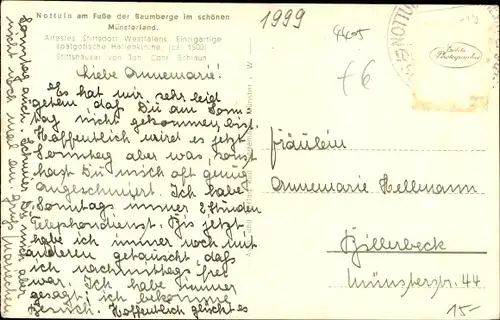 Nottuln am Fuße der Baumberge im schönen
Münsterland.
Ältestes Stiftsdorf Westfalens. Einzigartige
spätgotische Hallenkirche. (ca. 1500)
Stiftshäuser von Joh. Conr. Schlaun
1999
4405
f6
NOTTULN
Echte
Photographie
Liebe Annemarie!
Es hat mir sehr leid
getan, daß Du am Sonn
tag nicht gekommen bist.
Hoffentlich wird es jetzt
Sonntag aber was, sonst
hast Du mich oft genug
angeschmiert. Ich habe
Sonntags immer 2 Stunden
Telephondienst. Bis jetzt
habe ich immer noch mit
anderen getauscht, daß
ich nachmittags frei
war. Ich habe immer
gesagt, ich bekomme
Besuch. Hoffentlich glückt es
Sonntag auch. Schmier Du mich aber
nicht noch mal an. Gruß
Fräulein
Annemarie Hellmann
Billerbeck
Münsterstr. 44
15-